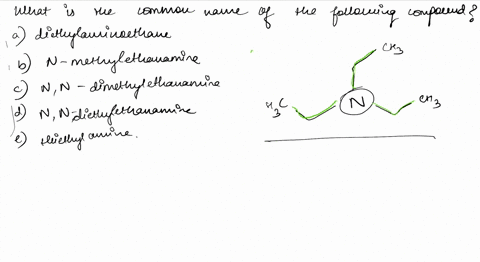 What is the common name of the following compound?
a) diethylaminoethane
b) N-methylethanamine
c) N,N-dimethylethanamine
d) N,N-diethylethanamine
e) triethylamine.
CH3
H3C
N
CH3